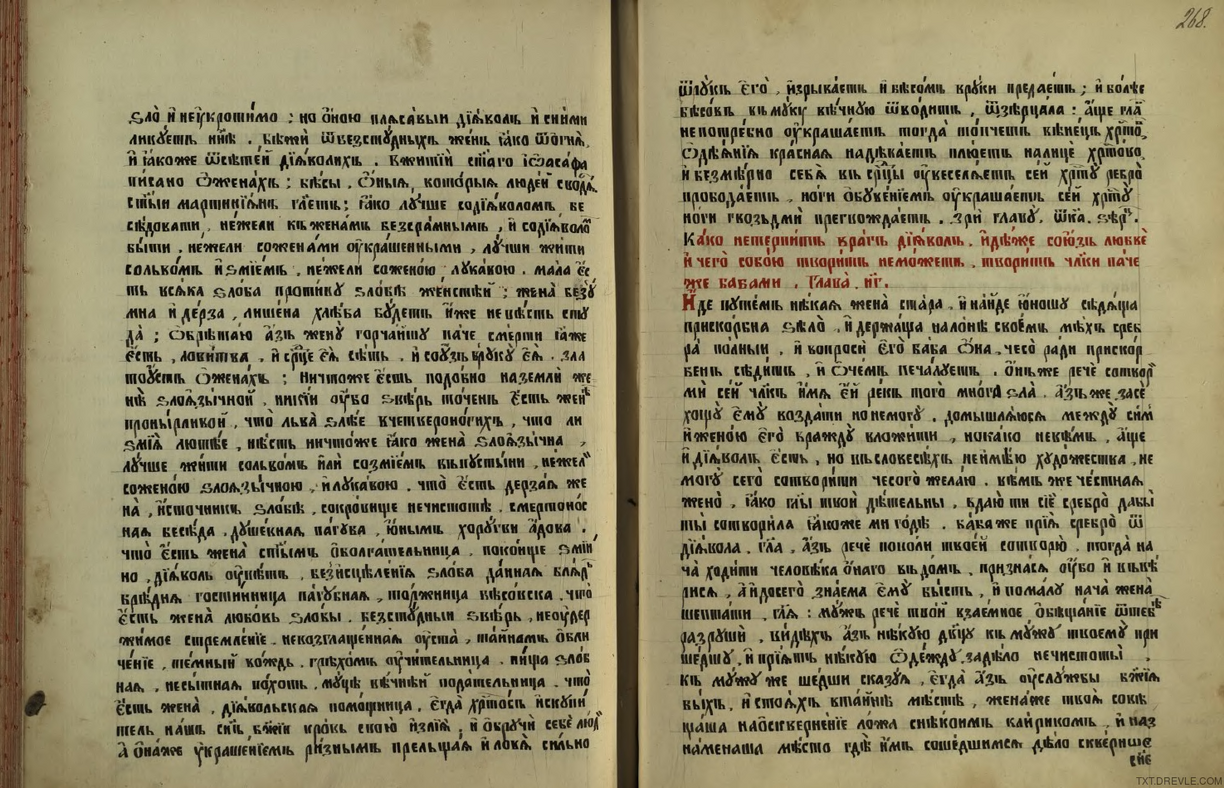 ѕло и неꙋкротимо ; но оною плѧсавыи дїѧволъ и сними
ликꙋетъ нн҃ѣ . бѣжи ѿбезстꙋдныхъ женъ ꙗко ѿогнѧ,
и ꙗкоже ѿсѣтей дїѧволихъ . вжитїи ст҃аго іѡасафа
писано ѡженахъ ; бѣсы . ѡныѧ, которыѧ людей сводѧ.
ст҃ыи мартинїѧнъ гл҃етъ ; ꙗко лꙋчше содїѧволомъ бе
сѣдовати, нежели къ женамъ безсрамнымъ , и содїѧволо
быти . нежели соженами ѹкрашенными , лꙋчши жити
солькомъ и ѕмїемъ , нежели соженою лꙋкавою . мала е҆с
ть всѧка ѕлоба противꙋ ѕлобѣ женстѣй ; жена безꙋ
мна и дерза , лишена хлѣба бꙋдетъ иже не вѣсть стꙋ
да ; ѡбрѣтаю азъ женꙋ горчайшꙋ паче смерти ꙗже
есть , ловитва , и ср҃це еѧ сѣть . и соꙋзъ врꙋкꙋ еѧ . зла
тоꙋстъ ѡженахъ ; ничтоже есть подобно наземли же
нѣ ѕлоѧзычной . никїи ѹбо ѕвѣрь точенъ есть жен
пронырливой , что льва ѕлѣе вчетвероногихъ , что ли
ѕмїѧ лютѣе , нѣсть ничтоже ꙗко жена ѕлоѧзычна ,
лꙋчше жити сольвомъ или созмїемъ въпꙋстыни , нежел
соженою ѕлоѧзычною , и лꙋкавою . что есть дерзаѧ же
на , источникъ ѕлобѣ , сокровище нечистотѣ . смертонос
наѧ бесѣда , дꙋшевнаѧ пагꙋба , юнымъ хорꙋгви адова .
что есть жена ст҃ымъ оболгательница . покоище ѕмїи
но , дїѧволь ѹвѣтъ , безисцѣленїѧ ѕлоба даннаѧ
блѣднѧ гостинница пагꙋбнаѧ , торжница бѣсовска . что
есть жена любовь ѕлобы . безстꙋдныи ѕвѣрь , неоудер
жимое стремленїе . невозглашеннаѧ ꙋста , тайнамъ обли
ченїе , темный вождь . грѣхомъ ѹчительница . пища ѕлоб
наѧ , несытнаѧ похоть . мꙋцѣ вѣчнѣй подательница . что
есть жена , дїѧвольскаѧ помощница , егда хр҃тосъ искꙋпи
тель нашъ сн҃ъ бж҃їи кровь свою излїѧ , и обрꙋчи себѣ люд
а онаже ꙋкрашенїемъ ризнымъ прельщаѧ и ловѧ сильно
268.
ѿлꙋкъ его , изрываетъ и бѣсомъ врꙋки предаетъ ; и болѣе
бѣсовъ въ мꙋкꙋ вѣчнꙋю ѿводитъ , ѿзѣрцала : аще гла
непотребно ѹкрашаетъ тогда топчетъ вѣнецъ хр҃то,
ѡдѣѧнїѧ краснаѧ надѣваетъ плюетъ налице хр҃тово,
и безмѣрно себѧ въ ср҃цы ѹвеселѧетъ сей хр҃тꙋ ребро
прободаетъ , ноги обꙋвенїемъ ѹкрашаетъ сей хр҃тꙋ
ноги гвоздьми прегвождаетъ . зри главꙋ,
Како петерпитъ врагъ дїѧволъ . идѣже союзъ любве
и чего собою творитъ неможетъ . творитъ чл҃ки паче
же бабами , Глава . иг҃.
Иде пꙋтемъ нѣкаѧ жена стара , и найде юношꙋ сѣдѧща
прискорбна ѕѣло , и держаща налонѣ своемъ мѣхъ среб
ра полный , и вопроси его баба она , чесо ради прискор
бенъ сѣдитъ , и ѡчемъ печалꙋетъ . онъже рече сотвор
ми сей чл҃къ имѧ ей рекъ того много ѕла . азъ же засе
хощꙋ емꙋ воздати но немогꙋ . домышлѧюсѧ междꙋ сим
и женою его враждꙋ вложити , но како невѣмъ , аще
и дїѧволъ есть , но въсловесѣхъ неимѣю хꙋдожества , не
могꙋ сего сотворити чесого желаю . вѣмъ же честнаѧ
жено , ꙗко гл҃ы твои дѣтельны , вдаю ти сїе сребро дабы
ты сотворила ꙗкоже ми годѣ . баба же прїѧ сребро ѿ
дїѧвола . гл҃а , азъ рече поволи твоей сотворю . тогда на
ча ходити человѣка онаго въ домъ , признасѧ ѹбо и
рисѧ , аидосего знаема емꙋ бысть , и помалꙋ нача жена
шептати , гл҃ѧ : мꙋжъ рече твой взаемное обѣщанїе ѿтеб
разрꙋши , видѣхъ азъ нѣкꙋю дв҃цꙋ къ мꙋжꙋ твоемꙋ при
шедшꙋ, и прїѧтъ нѣкꙋю ѡдеждꙋ, задѣло нечистоты .
къ мꙋжꙋ же шедши сказꙋѧ , егда азъ оуслꙋжбы бж҃їѧ
быхъ, и стоѧхъ втайнѣ мѣстѣ , женаже твоѧ совѣ
щаша наѡсквернение ложа снѣкоимъ клирикомъ , и наз
наменаша мѣсто гдѣ имъ сошедшимсѧ дѣло скверное
TXT.DREVLE.COM